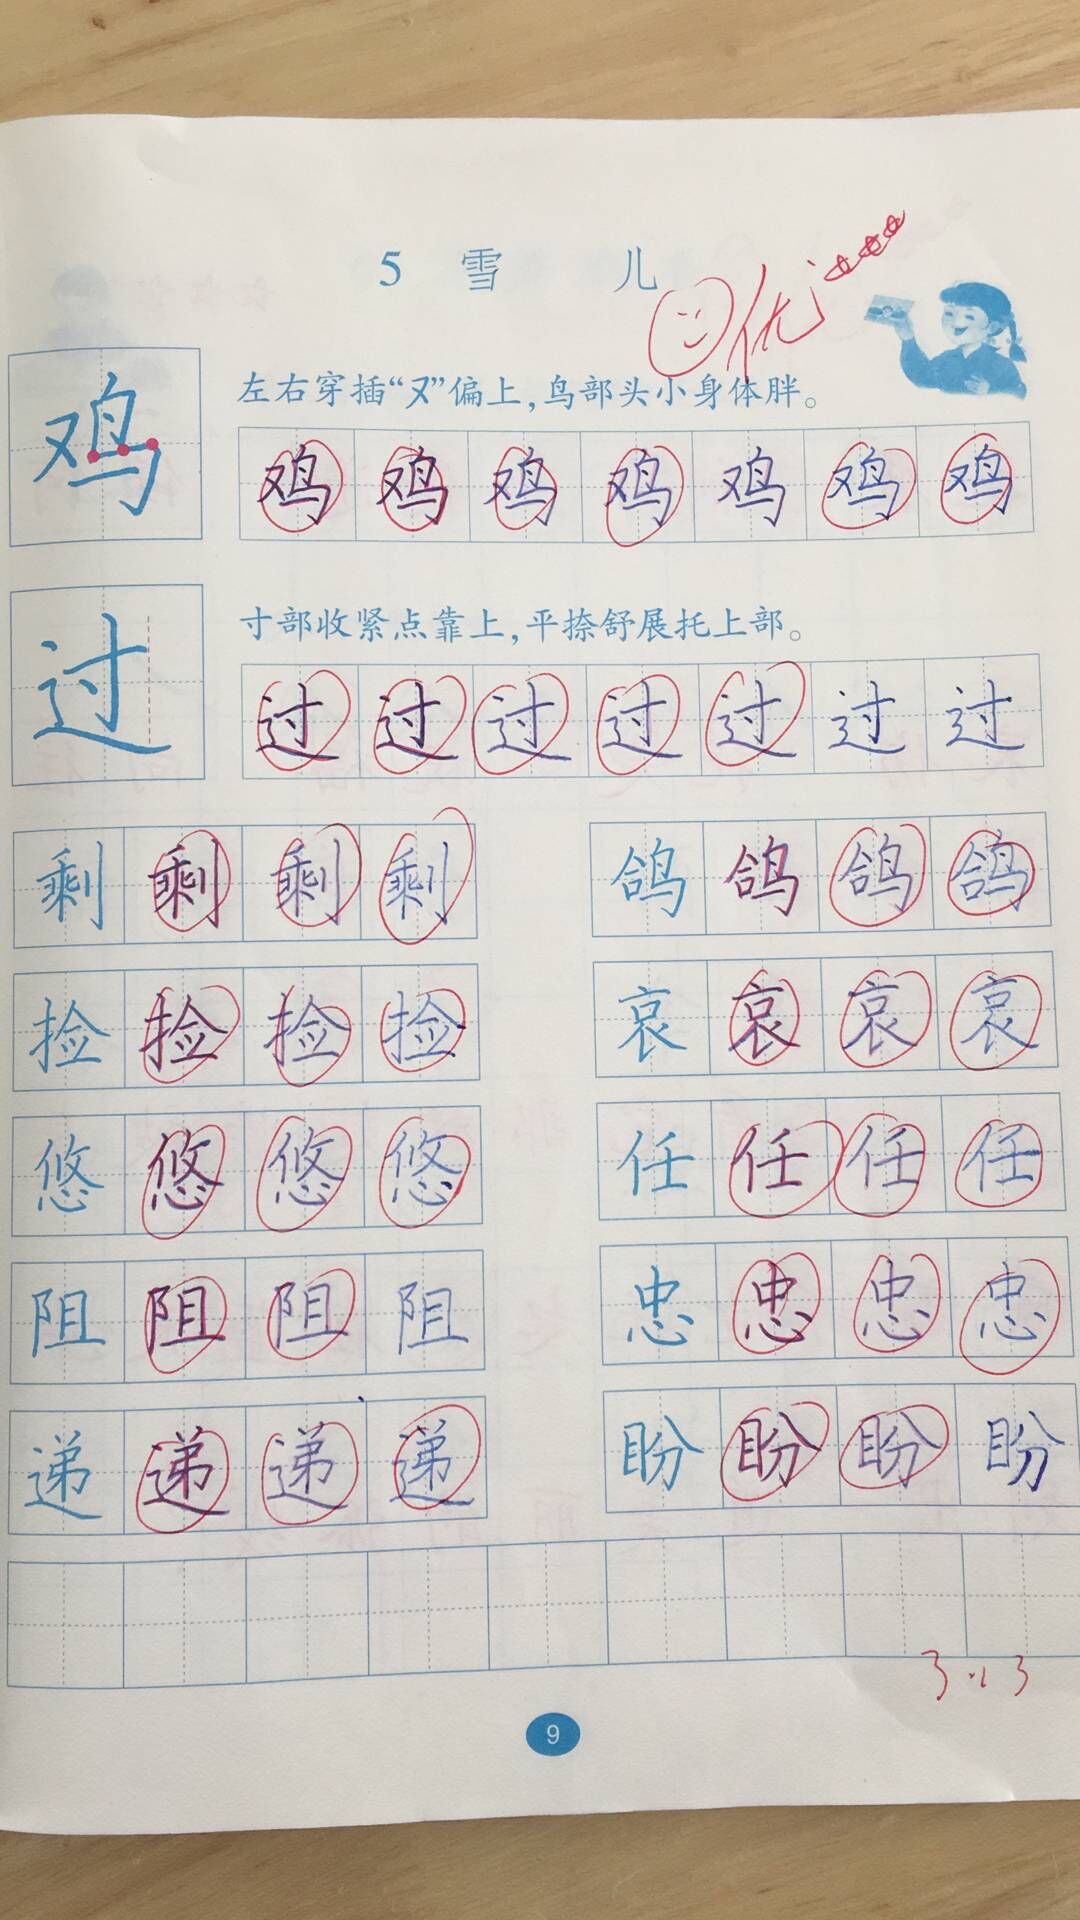 5 雪 儿
优
左右穿插“又”偏上,鸟部头小身体胖。
鸡 鸡 鸡 鸡 鸡 鸡 鸡 鸡
寸部收紧点靠上,平捺舒展托上部。
过 过 过 过 过 过 过 过
剩 剩 剩 剩 鸽 鸽 鸽 鸽
捡 捡 捡 捡 哀 哀 哀 哀
悠 悠 悠 悠 任 任 任 任
阻 阻 阻 阻 忠 忠 忠 忠
递 递 递 递 盼 盼 盼 盼
3.13
9